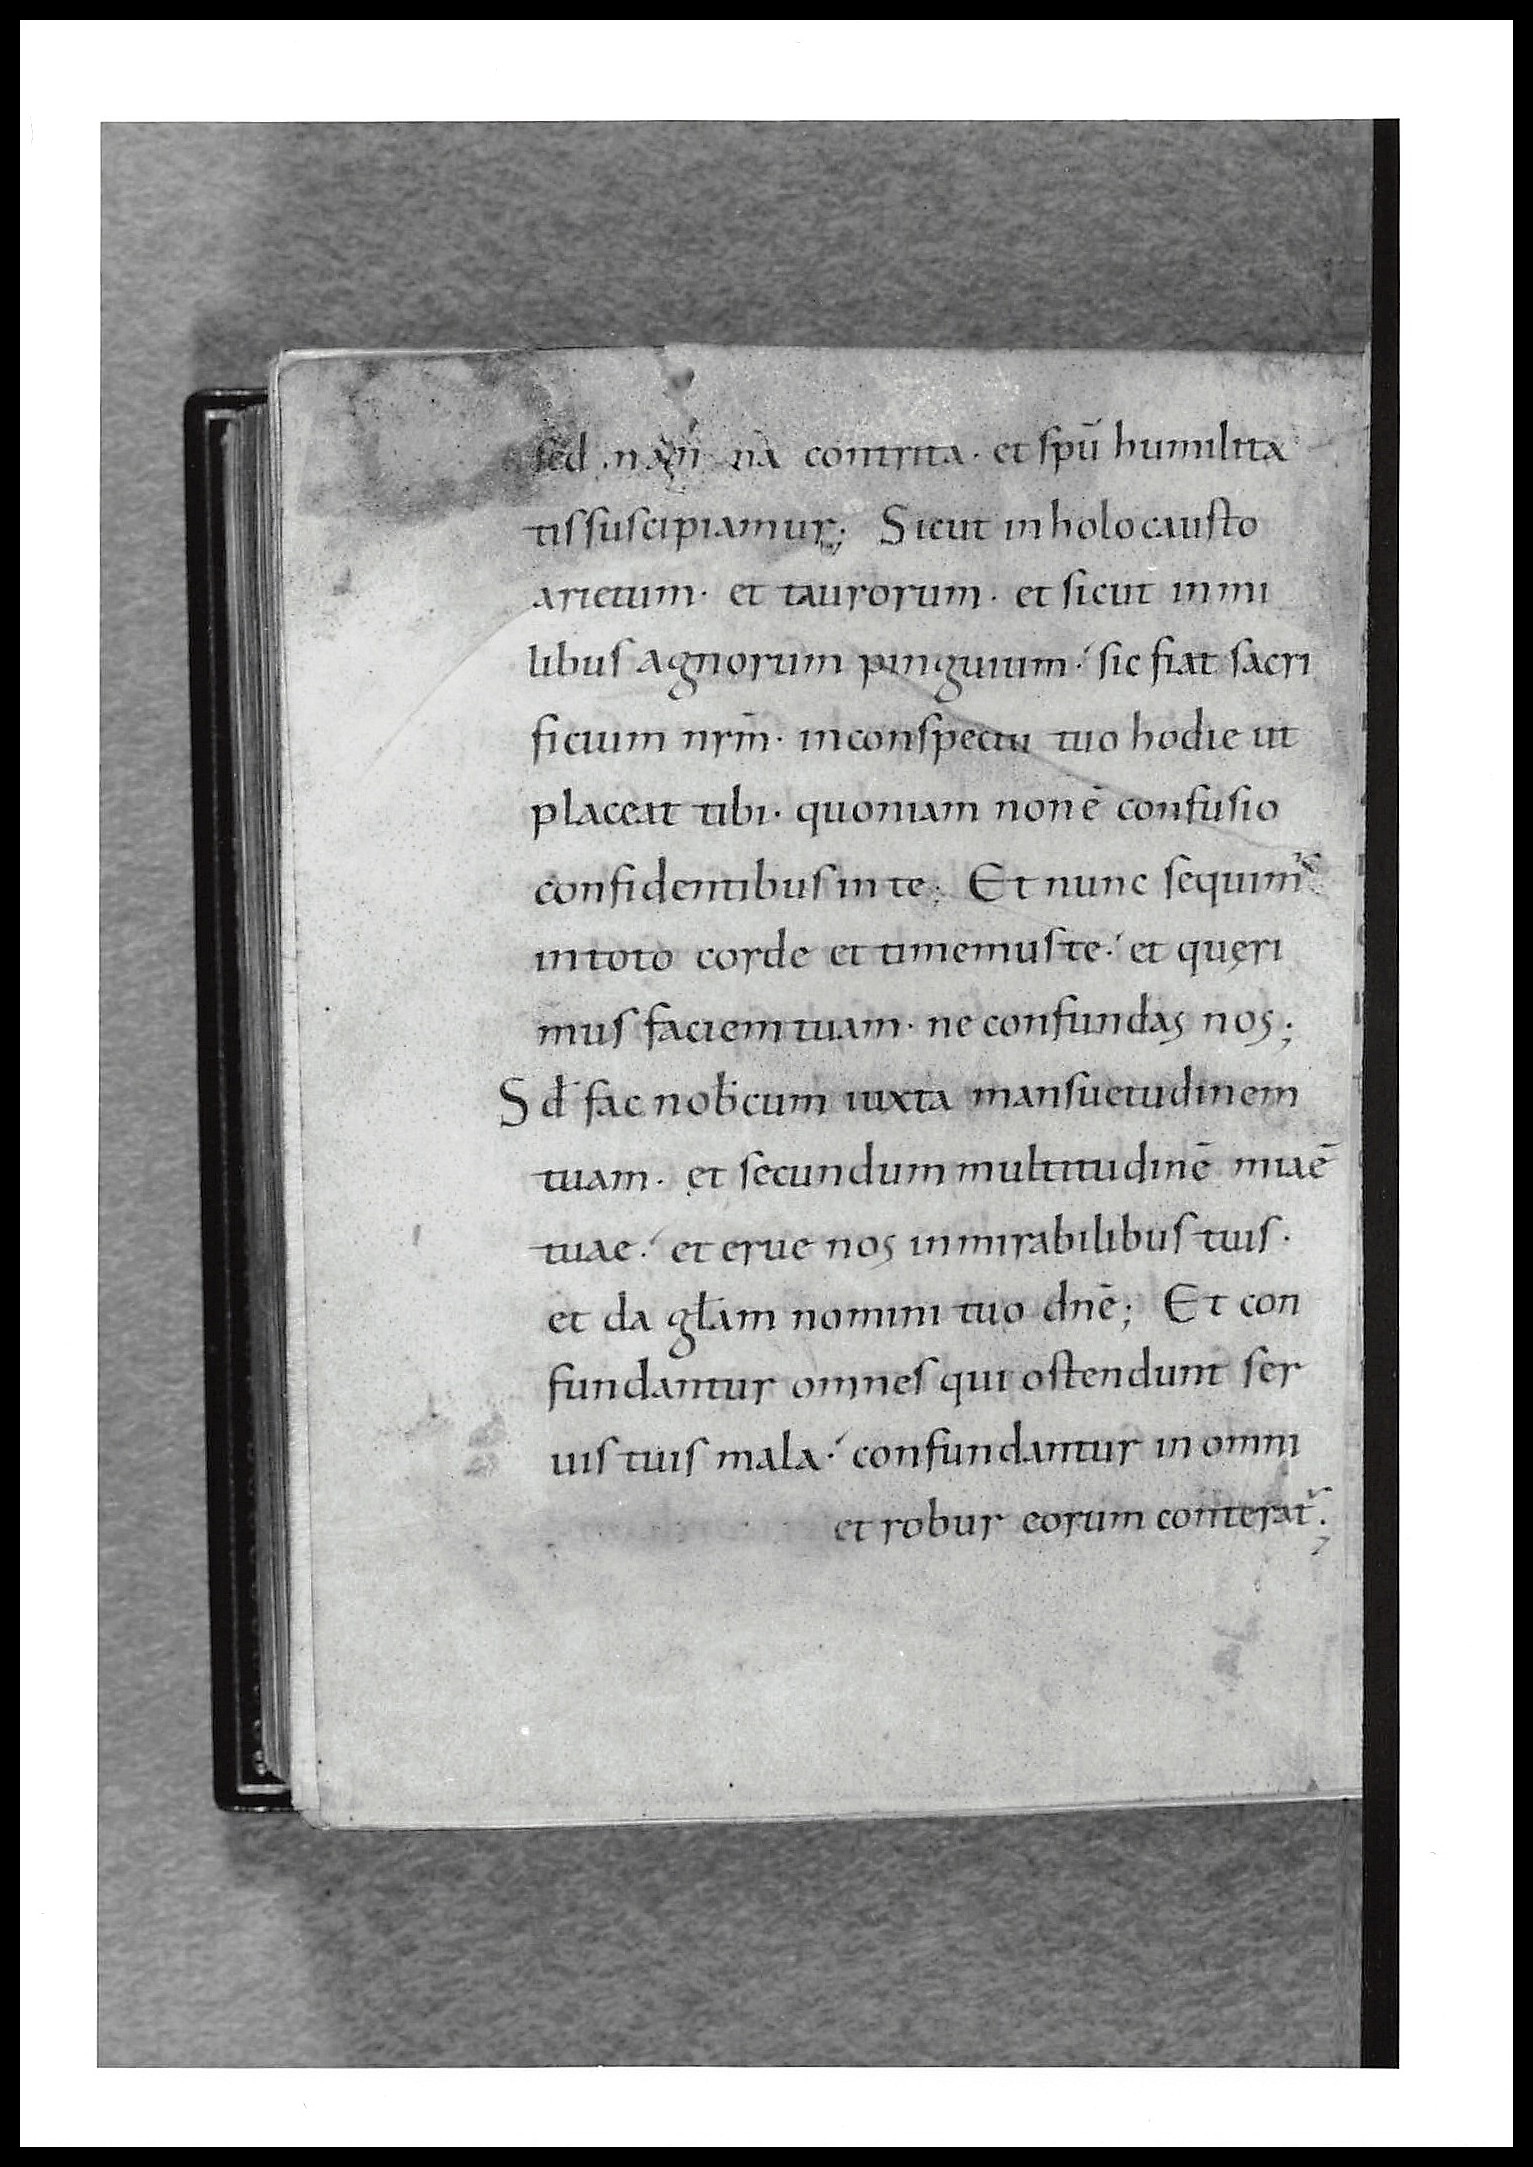 sed in anima contrita · et spū humilita
tis suscipiamur; Sicut in holocausto
arietum · et taurorum · et sicut in mi
libus agnorum pinguium ·́ sic fiat sacri
ficium nrm̄ · in conspectu tuo hodie ut
placeat tibi · quoniam non ē confusio
confidentibus in te; Et nunc sequim᷒
in toto corde et timemus te ·́ et quęri
mus faciem tuam · ne confundas nos;
Sd̄ fac nob̄cum iuxta mansuetudinem
tuam · et secundum multitudinē miae̅
tuae ·́ et erue nos in mirabilibus tuis ·
et da gl̄am nomini tuo dnē; Et con
fundantur omnes qui ostendunt ser
uis tuis mala ·́ confundantur in omni
et robur eorum conterat᷑;